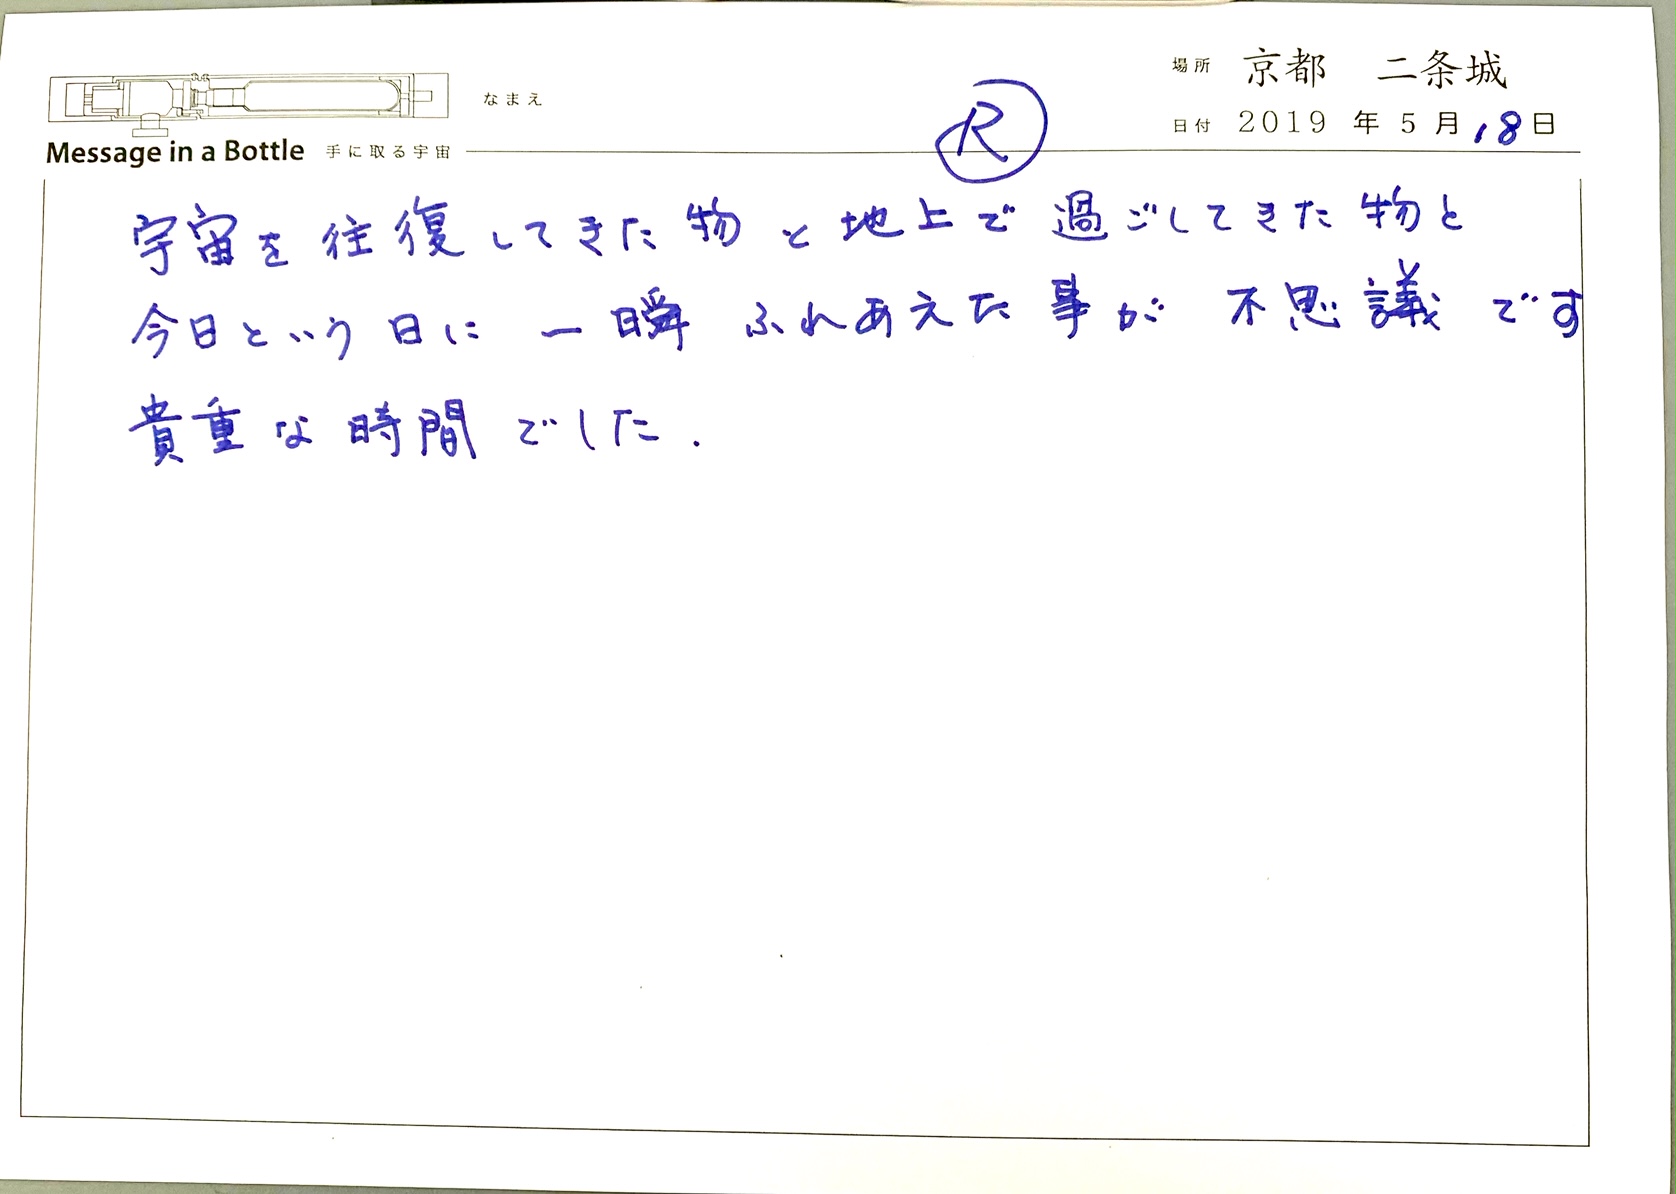 場所 京都 二条城
なまえ R
日付 2019 年 5 月 18 日
Message in a Bottle 手に取る宇宙
宇宙を往復してきた物と地上で過ごしてきた物と
今日という日に一瞬ふれあえた事が不思議です
貴重な時間でした.